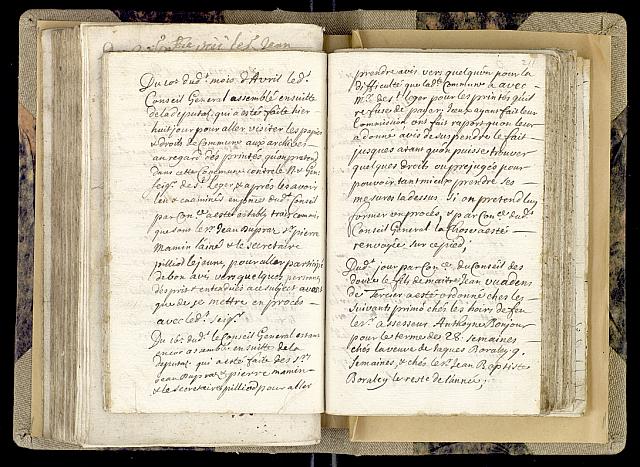 Du 10e dud. mois d'Avril led.
Conseil General assemblé ensuitte
de la deputat. qui a esté faite hier
huit jour pour aller visiter les papie
& droits de Commune aux archives
au regard des printes qu'on pretend
dans cette Commune contre le Rd Gen.
seigr. de St. Leger & apres les avoir
leu & examinés en plein dud. Conseil
par Con. a esté estably trois commis
que sont les Srs. Jean Dupraz St. pierre
Mamin l'ainé & le secretaire
pilliod le jeune, pour aller participé
de bon avis vers quelques personnes
d'esprit entendües au subject avant
que de se mettre en procès
avec led. Seigr.
Du 16e dud. le Conseil General assem
encor assemblé ensuitte de la
deputat. qui a esté faite des Srs.
Jean Dupraz & pierre mamin
& le secretaire pilliod pour aller
prendre avis vers quelqu'un pour la
Difficulté que lad. Commune a avec
Mr. de St. leger pour les printes qu'il
refuse de payer; Iceux ayant fait leur
Commission ont fait raport qu'on leur
a donné avis de suspendre le fait
jusques a tant qu'on puisse trouver
quelques droits ou prejugés pour
pouvoir tant mieux prendre ses
mesures la dessus. Si on pretend luy
former un procès, & par Con. dud.
Conseil General la chose a esté
renvoyée sur ce pied;
Dud. jour par Con. du Conseil des
douze le fils de maitre Jean
de Tercier a esté ordonné ches les
suivants primo ches les hoirs de feu
le Sr. assesseur Anthoyne Bonjour
pour le terme des 28. semaines
ches la veuve de Jaques Boraley 9.
semaines, & ches le Sr. Jean Baptiste
Boraley le reste de l'année;